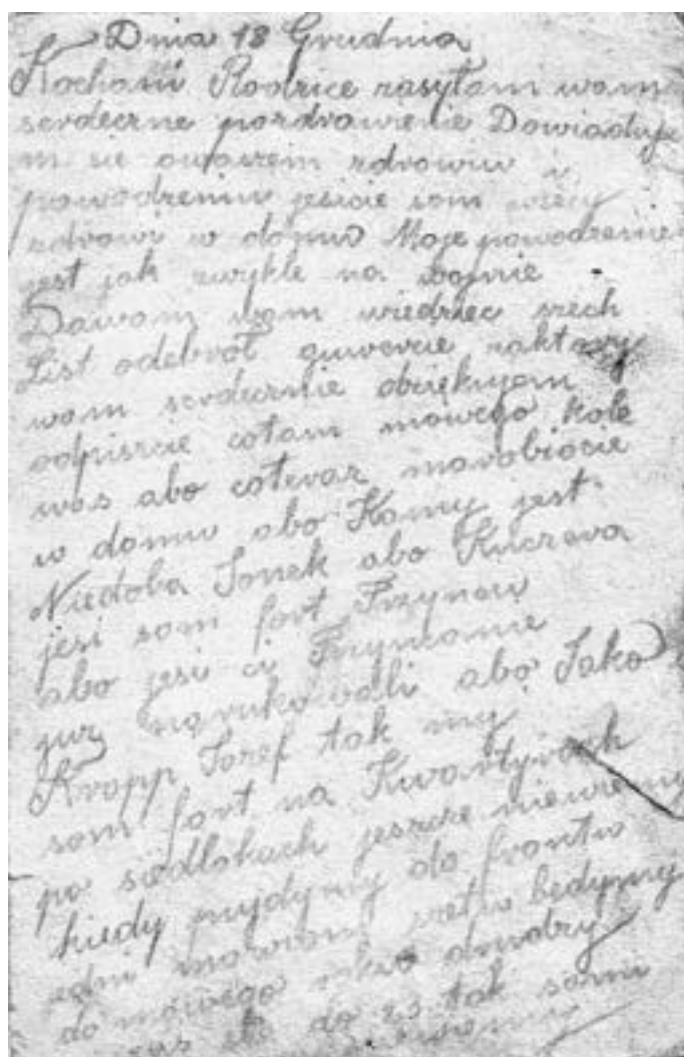 Dnia 18 Grudnia
Kochani Rodzice zasyłam wam
serdeczne pozdrawenie Dowiaduje
m sie owaszem zdrowiu i
powodzeniu jesicie som wszecy
zdrowi w domu Moje powodzenie
jest jak zwykle na wojnie
Dawom wom wiedziec zech
List odebroł guwercie zaktory
wom serdecznie dziękujem
odpiszcie cotam nowego kole
was abo coteraz marobiocie
w domu abo Kamy jest
Niedoba Jonek abo Kuczera
jesi som fort
abo jesi ci
juz narukowali abo Jako
Kropp Jozef tak my
som fort na Kwartyrach
po siedlokach jeszcze niewiemy
kiedy pujdymy do frontu
jedni mowiom bedymy
do nowego roku
do tak sami